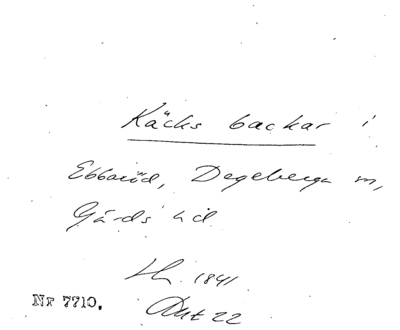 Käcks backar i
Ebbaröd, Degeberga sn,
Gärds hd
1841
Akt 22
Nr 7710.